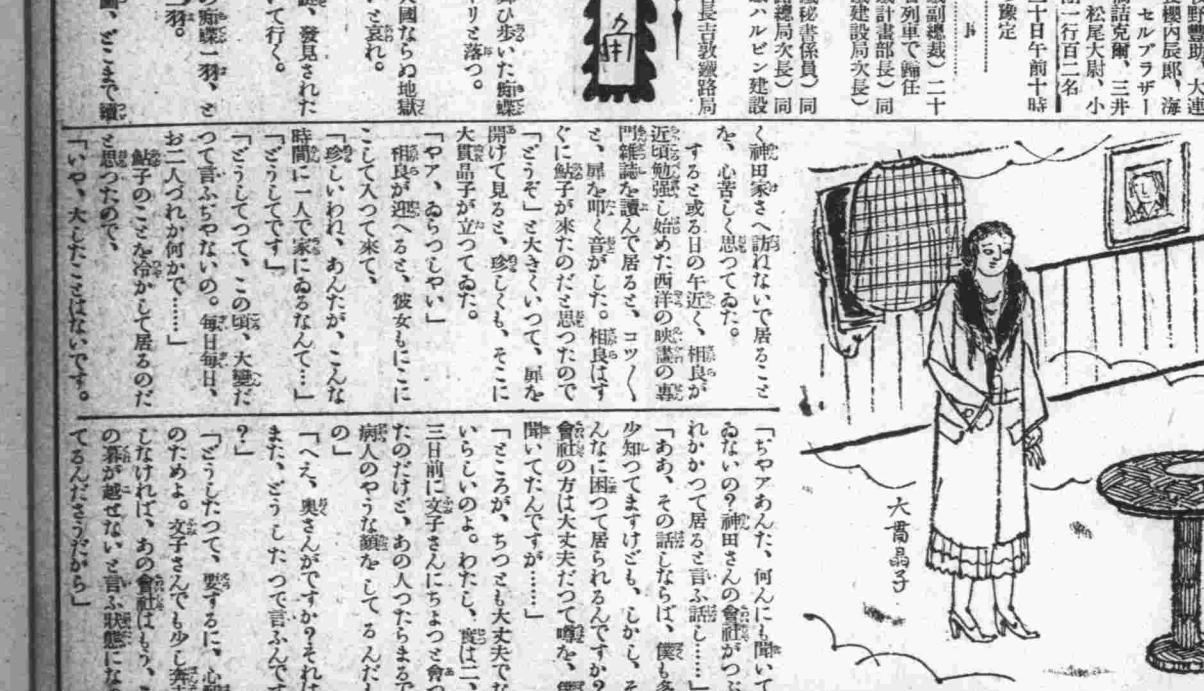 野豐助、大連
長櫻内辰郎、海
セルプラザー
橋詰克爾、三井
松尾大尉、小
団一行百二名
豫定
二十日午前十時
鐵副總裁）二十
着列車で歸任
鐵計畫部長）同
鐵建設局次長）
鐵秘書係員）同
路總局次長）同
鐵ハルビン建設
長吉敦鐵路局
舞ひ歩いた蜘蝶
キリと落つ。
天國ならぬ地獄
いと哀れ。
發見された
いて行く。
の蜘蝶一羽、と
一羽。
どこまで續
く神田家さへ訪れないで居ること
を、心苦しく思つてゐた。
すると或る日の午近く、相良が
近頃勉强し始めた西洋の映畫の專
門雜誌を讀んで居ると、コツ〱
と、扉を叩く音がした。相良はす
ぐに鮎子が來たのだと思つたので
「どうぞ」と大きくいつて、扉を
開けて見ると、珍しくも、そこに
大貫晶子が立つてゐた。
「やア、ゐらつしやい」
相良が迎へると、彼女もにこに
こして入つて來て、
「珍しいわれ、あんたが、こんな
時間に一人で家にゐるなんて…」
「どうしてです」
「どうしてつて、この頃、大變だ
つて言ふぢやないの。毎日毎日、
お二人づれか何かで………」
鮎子のことを冷かして居るのだ
と思つたので、
「いや、大したことはないです。
「ちやアあんた、何んにも聞いて
ゐないの？神田さんの會社がつぶ
れかかつて居ると言ふ話し……」
「ああ、その話しならば、僕も多
少知つてますけども、しかし、そ
んなに困つて居られるんですか？
會社の方は大丈夫だつて噂を、僕
聞いてたんですが……」
「ところが、ちつとも大丈夫でな
いらしいのよ。わたし、實は二、
三日前に文子さんにちよつと會つ
たのだけど、あの人つたらまるで
病人のやうな顔をしてるんだも
の」
「へえ、奥さんがですか？それは
また、どうしたつで言ふんです
？」
「どうしたつて、要するに、心配
のためよ。文子さんでも少し奔走
しなければ、あの會社はもう、こ
の暮が越せないと言ふ狀態になつ
てるんださうだから」
大貫晶子